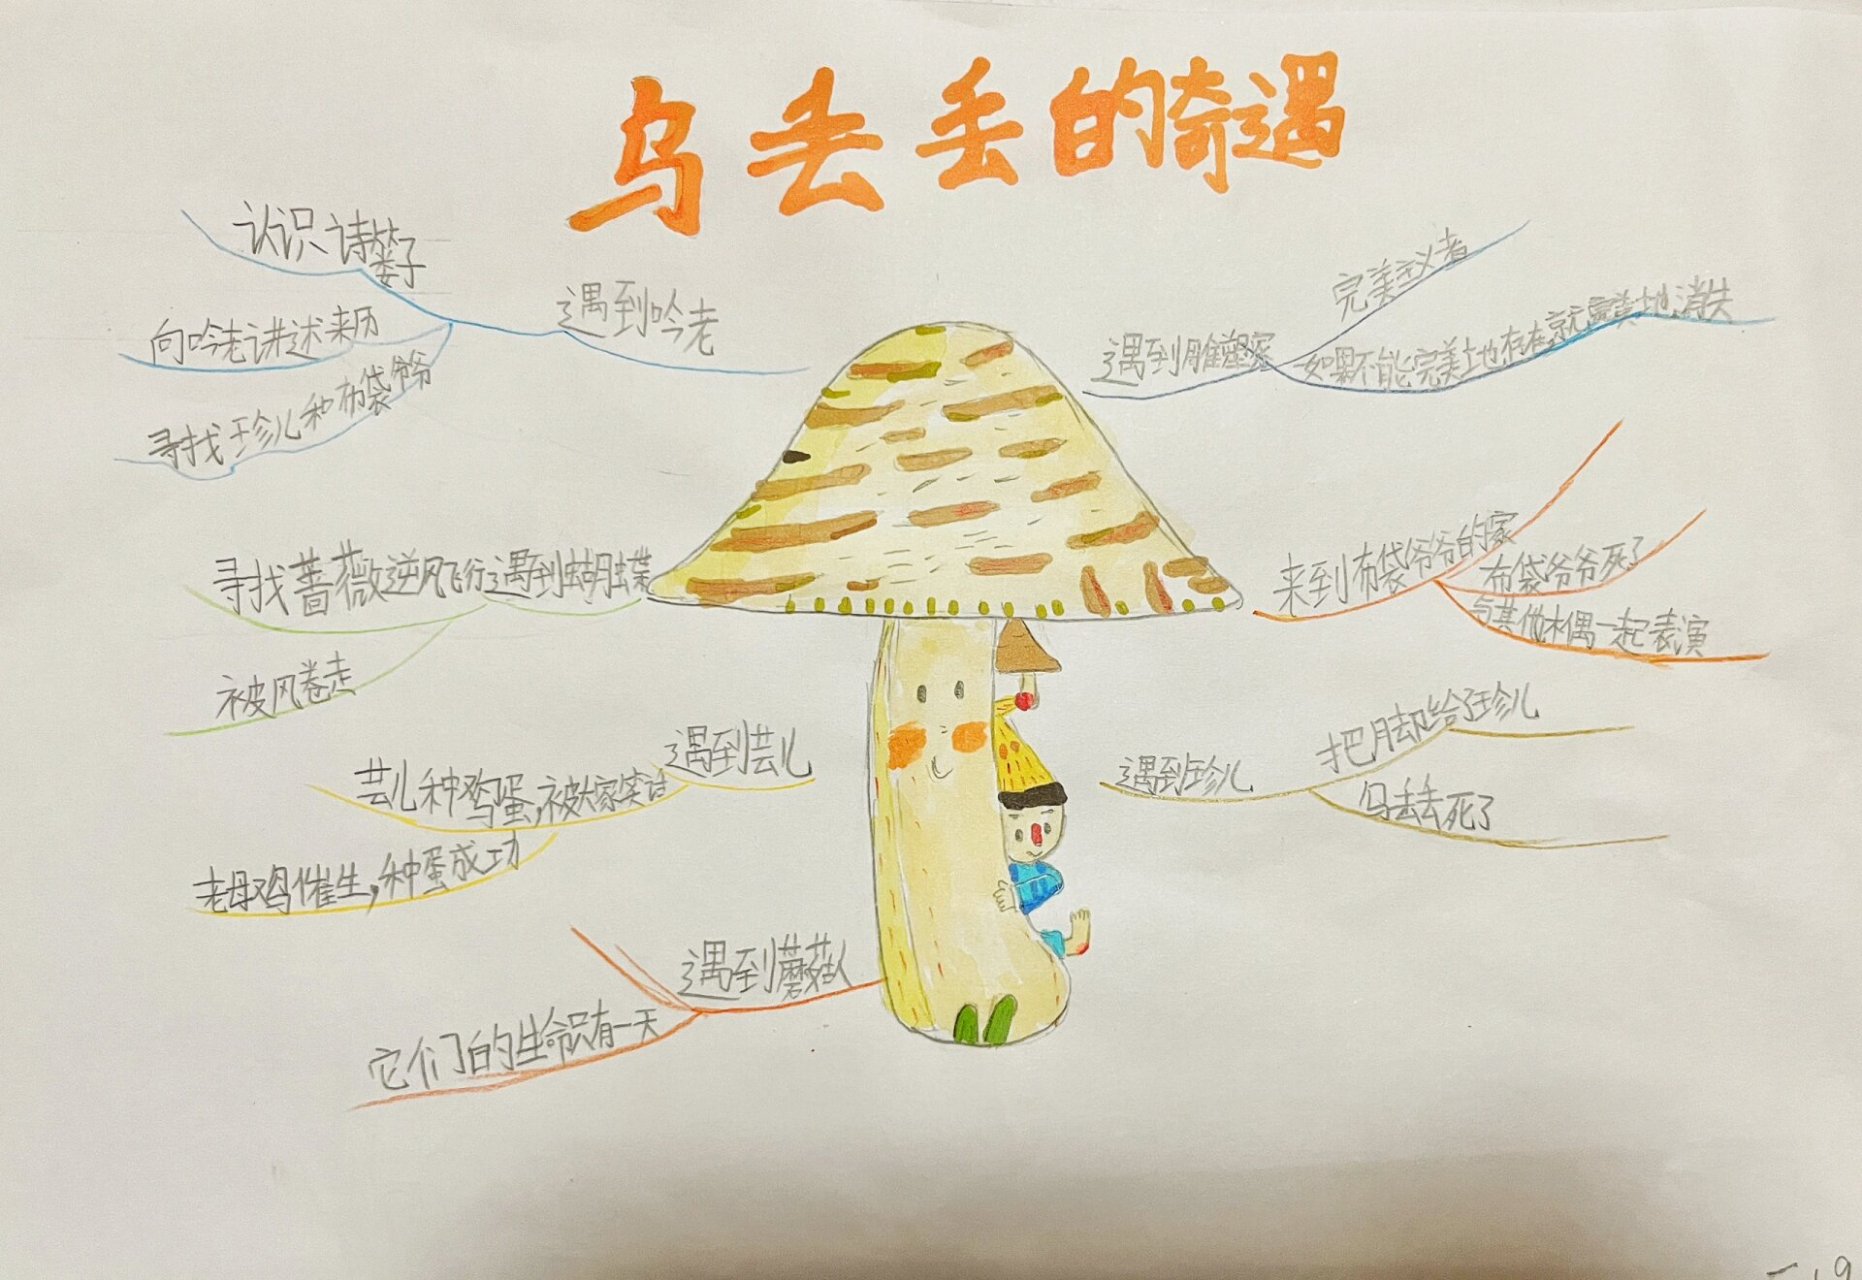 乌丢丢的奇遇
遇到吟老
认识诗篓子
向吟老讲述来历
寻找珍儿和布袋爷爷
遇到蝴蝶
寻找蔷薇逆风飞行
被风卷走
遇到芸儿
芸儿种鸡蛋,被大家笑话
老母鸡催生,种蛋成功
遇到蘑菇人
它们的生命只有一天
遇到雕塑家
完美主义者
如果不能完美地存在就完美地消失
来到布袋爷爷的家
布袋爷爷死了
与其他木偶一起表演
遇到珍儿
把脚给了珍儿
乌丢丢死了